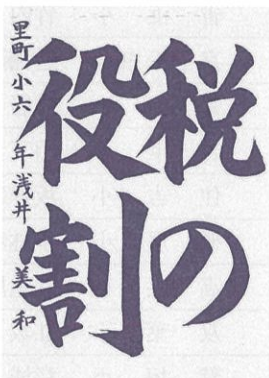 税の
役割
里町小六年浅井美和